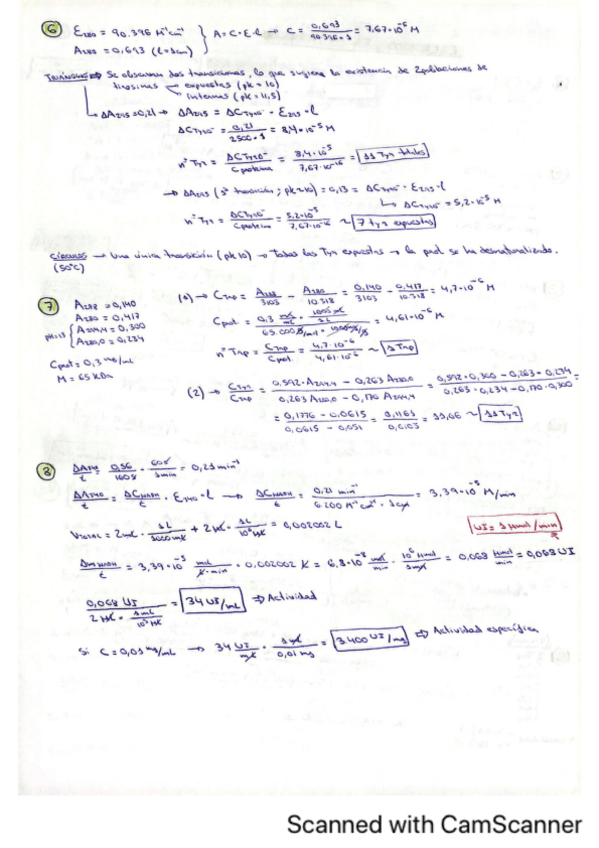 ⑥ E280 = 90.396 M⁻¹cm⁻¹ } A = C·E·l → C = 0,693 / 90.396·1 = 7,67·10⁻⁶ M
A280 = 0,693 (l=1cm)
Se observan dos transiciones, lo que sugiere la existencia de 2 poblaciones de
tirosinas expuestas (pK = 10)
internas (pK = 11,5)
ΔA295 = 0,21 → ΔA295 = ΔCTyrO⁻ · E295 · l
ΔCTyrO⁻ = 0,21 / 2500·1 = 8,4·10⁻⁵ M
nº Tyr = ΔCTyrO⁻ / Cproteína = 8,4·10⁻⁵ / 7,67·10⁻⁶ = 11 Tyr totales
→ ΔA295 (1ª transición; pK≈10) = 0,13 = ΔCTyrO⁻ · E295 · l
↳ ΔCTyrO⁻ = 5,2·10⁻⁵ M
nº Tyr = ΔCTyrO⁻ / Cproteína = 5,2·10⁻⁵ / 7,67·10⁻⁶ ~ 7 tyr expuestas
Círculos → Una única transición (pK 10) → Todas las Tyr expuestas → la prot. se ha desnaturalizado.
(50ºC)
⑦ A288 = 0,140
A280 = 0,417
pH=13 { A294,4 = 0,300
A280,0 = 0,234
Cprot = 0,3 mg/mL
M = 65 kDa
= 0,140 / 3103 - 0,417 / 10.318 = 4,7·10⁻⁶ M
Cprot = = 4,61·10⁻⁶ M
nº Trp = CTrp / Cprot = 4,7·10⁻⁶ / 4,61·10⁻⁶ ~ 1 Trp
(2) → CTyr / CTrp = 0,592·A294,4 - 0,263·A280,0 / 0,263·A280,0 - 0,170·A294,4 = 0,592·0,300 - 0,263·0,234 / 0,263·0,234 - 0,170·0,300 =
= 0,1776 - 0,0615 / 0,0615 - 0,051 = 0,1163 / 0,0105 = 11,06 ~ 11 Tyr
⑧ ΔA340 / t = 0,56 / 160 s · 60 s / 1 min = 0,21 min⁻¹
ΔA340 / t = ΔCNADH / t · E340 · l → ΔCNADH / t = 0,21 min⁻¹ / 6200 M⁻¹cm⁻¹ · 1cm = 3,39·10⁻⁵ M/min
VTOTAL = 2 mL · 1L / 1000 mL + 2 μL · 1L / 10⁶ μL = 0,002002 L
UI = 1 μmol/min
ΔnNADH / t = 3,39·10⁻⁵ mol / L·min · 0,002002 L = 6,8·10⁻⁸ mol / min · 10⁶ μmol / 1 mol = 0,068 μmol / min = 0,068 UI
0,068 UI / 2 μL · 1 mL / 10³ μL = 34 UI/mL ⇒ Actividad
Si C = 0,01 mg/mL → 34 UI / mL · 1 mL / 0,01 mg = 3400 UI/mg ⇒ Actividad específica
Scanned with CamScanner